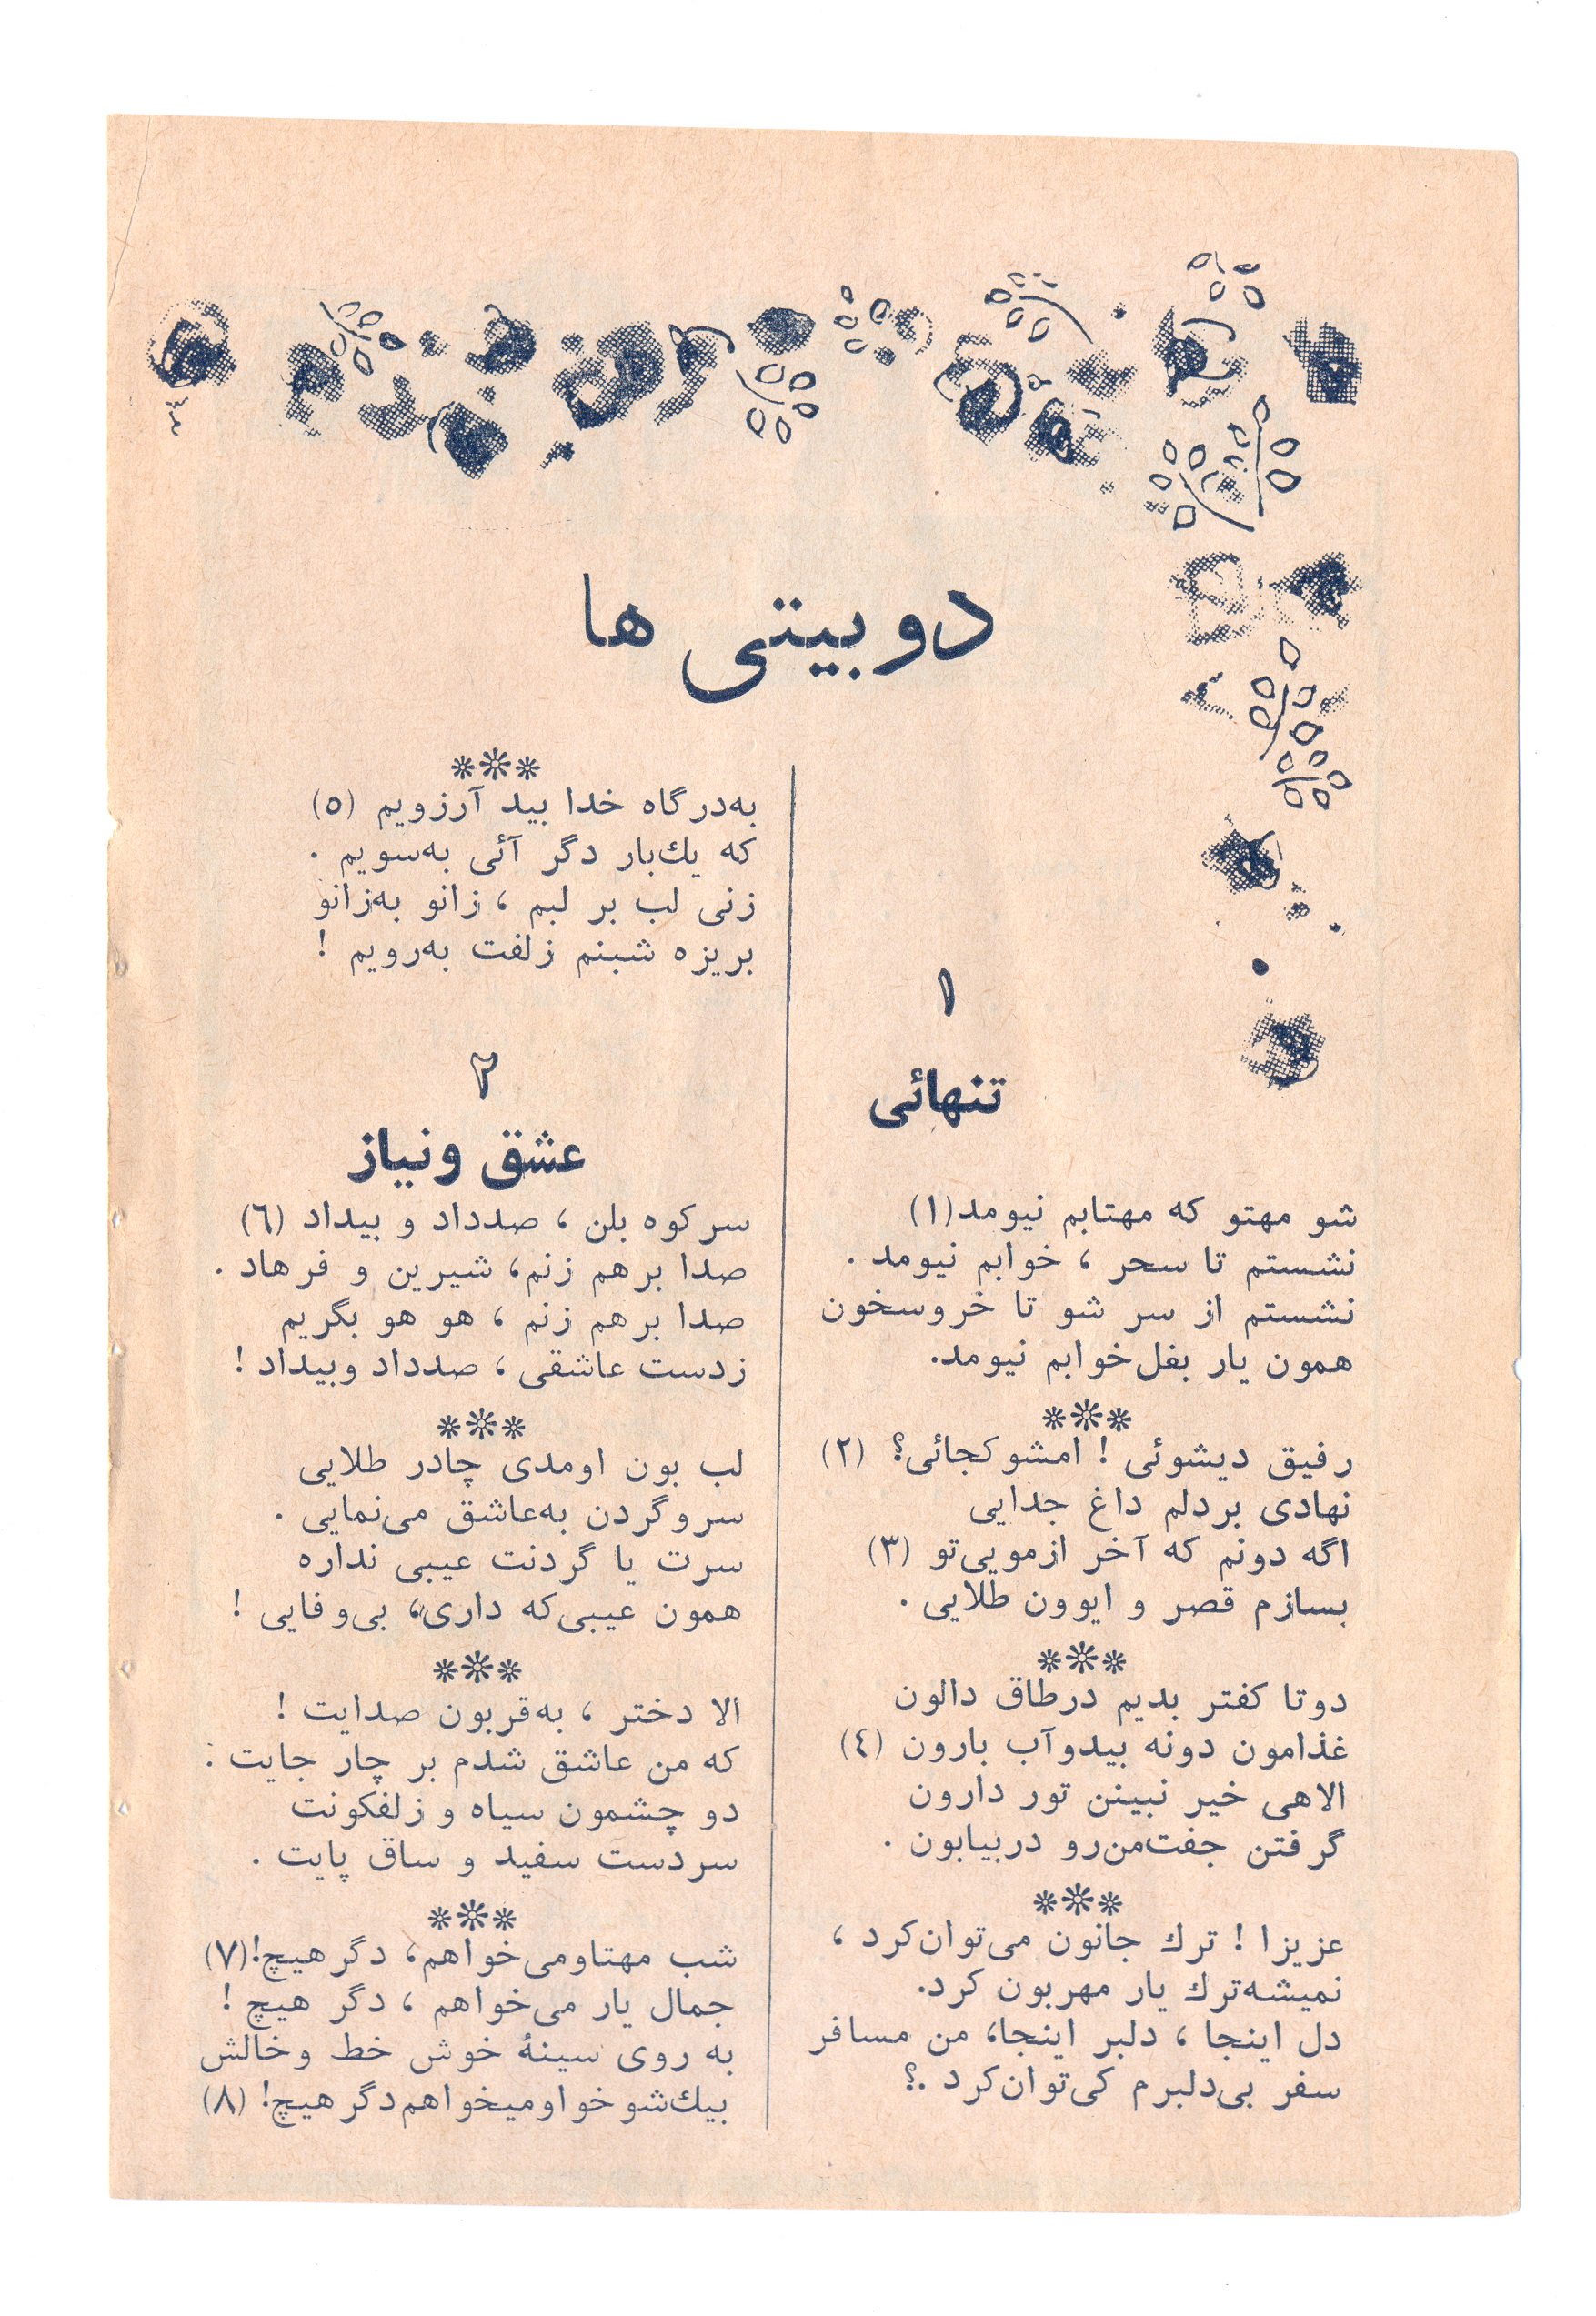 دو بیتی ها
۱
تنهائی
شو مهتو که مهتابم نیومد(۱)
نشستم تا سحر ، خوابم نیومد .
نشستم از سر شو تا خروسخون
همون یار بغل‌خوابم نیومد.
***
رفیق دیشوئی ! امشو کجائی؟ (۲)
نهادی بردلم داغ جدایی
اگه دونم که آخر ازمویی‌تو (۳)
بسازم قصر و ایوون طلایی .
***
دوتا کفتر بدیم درطاق دالون
غذامون دونه بیدوآب بارون (٤)
الاهی خیر نبینن تور دارون
گرفتن جفت‌من‌رو دربیابون .
***
عزیزا ! ترك جانون می‌توان‌کرد ،
نمیشه‌ترك یار مهربون کرد.
دل اینجا ، دلبر اینجا، من مسافر
سفر بی‌دلبرم کی‌توان‌کرد .؟
***
به‌درگاه خدا بید آرزویم (٥)
که یك‌بار دگر آئی به‌سویم .
زنی لب بر لبم ، زانو به‌زانو
بریزه شبنم زلفت به‌رویم !
۲
عشق ونیاز
سر کوه بلن ، صدداد و بیداد (٦)
صدا برهم زنم، شیرین و فرهاد .
صدا برهم زنم ، هو هو بگریم
زدست عاشقی ، صدداد وبیداد !
***
لب بون اومدی چادر طلایی
سروگردن به‌عاشق می‌نمایی .
سرت یا گردنت عیبی نداره
همون عیبی‌که داری، بی‌وفایی !
***
الا دختر ، به‌قربون صدایت !
که من عاشق شدم بر چار جایت :
دو چشمون سیاه و زلفکونت
سردست سفید و ساق پایت .
***
شب مهتاومی‌خواهم، دگر هیچ!(۷)
جمال یار می‌خواهم ، دگر هیچ !
به روی سینهٔ خوش خط وخالش
بیك‌شو خواومیخواهم‌دگر هیچ! (۸)